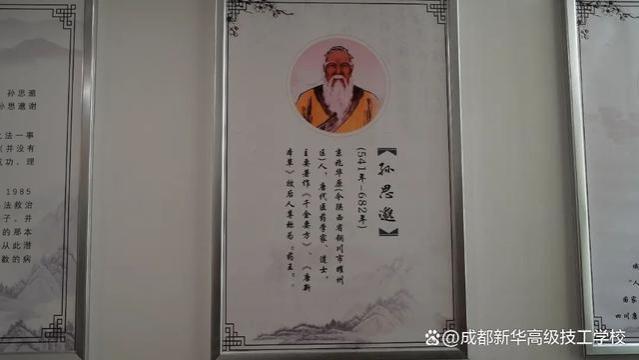 孙思邈
孙思邈谢
之法一事
(并没有
成功，理
1985
法救治
子。并
的那本
从此潜
数的病
【孙思邈】
(541年-682年)
京兆华原(今陕西省铜川市耀州
区)人、唐代医药学家、道士。
主要著作《千金要方》、《唐新
本草》被后人尊称为“药王”。
“人
国家
四川康
@成都新华高级技工学校